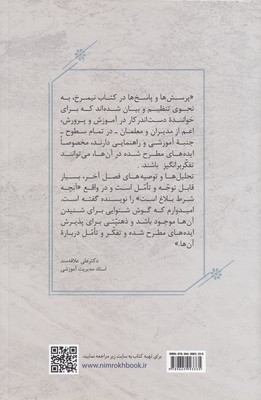 «پرسش‌ها و پاسخ‌ها در کتاب نیمرخ، به
نحوی تنظیم و بیان شده‌اند که برای
خوانندهٔ دست‌اندرکار در آموزش و پرورش،
اعم از مدیران و معلمان ـ در تمام سطوح ـ
جنبهٔ آموزشی و راهنمایی دارند، مخصوصاً
ایده‌های مطرح شده در آن‌ها، می‌توانند
تفکّربرانگیز باشند.
تحلیل‌ها و توصیه‌های فصل آخر، بسیار
قابل توجّه و تأمّل است و در واقع «آنچه
شرط بلاغ است» را نویسنده گفته است.
امیدوارم که گوش شنوایی برای شنیدن
آن‌ها موجود باشد و ذهنیّتی برای پذیرش
ایده‌های مطرح شده و تفکّر و تأمّل دربارهٔ
آن‌ها.»
دکتر علی علاقه‌مند
استاد مدیریت آموزشی
برای تهیه کتاب به سایت زیر مراجعه نمایید.
www.nimrokhbook.ir